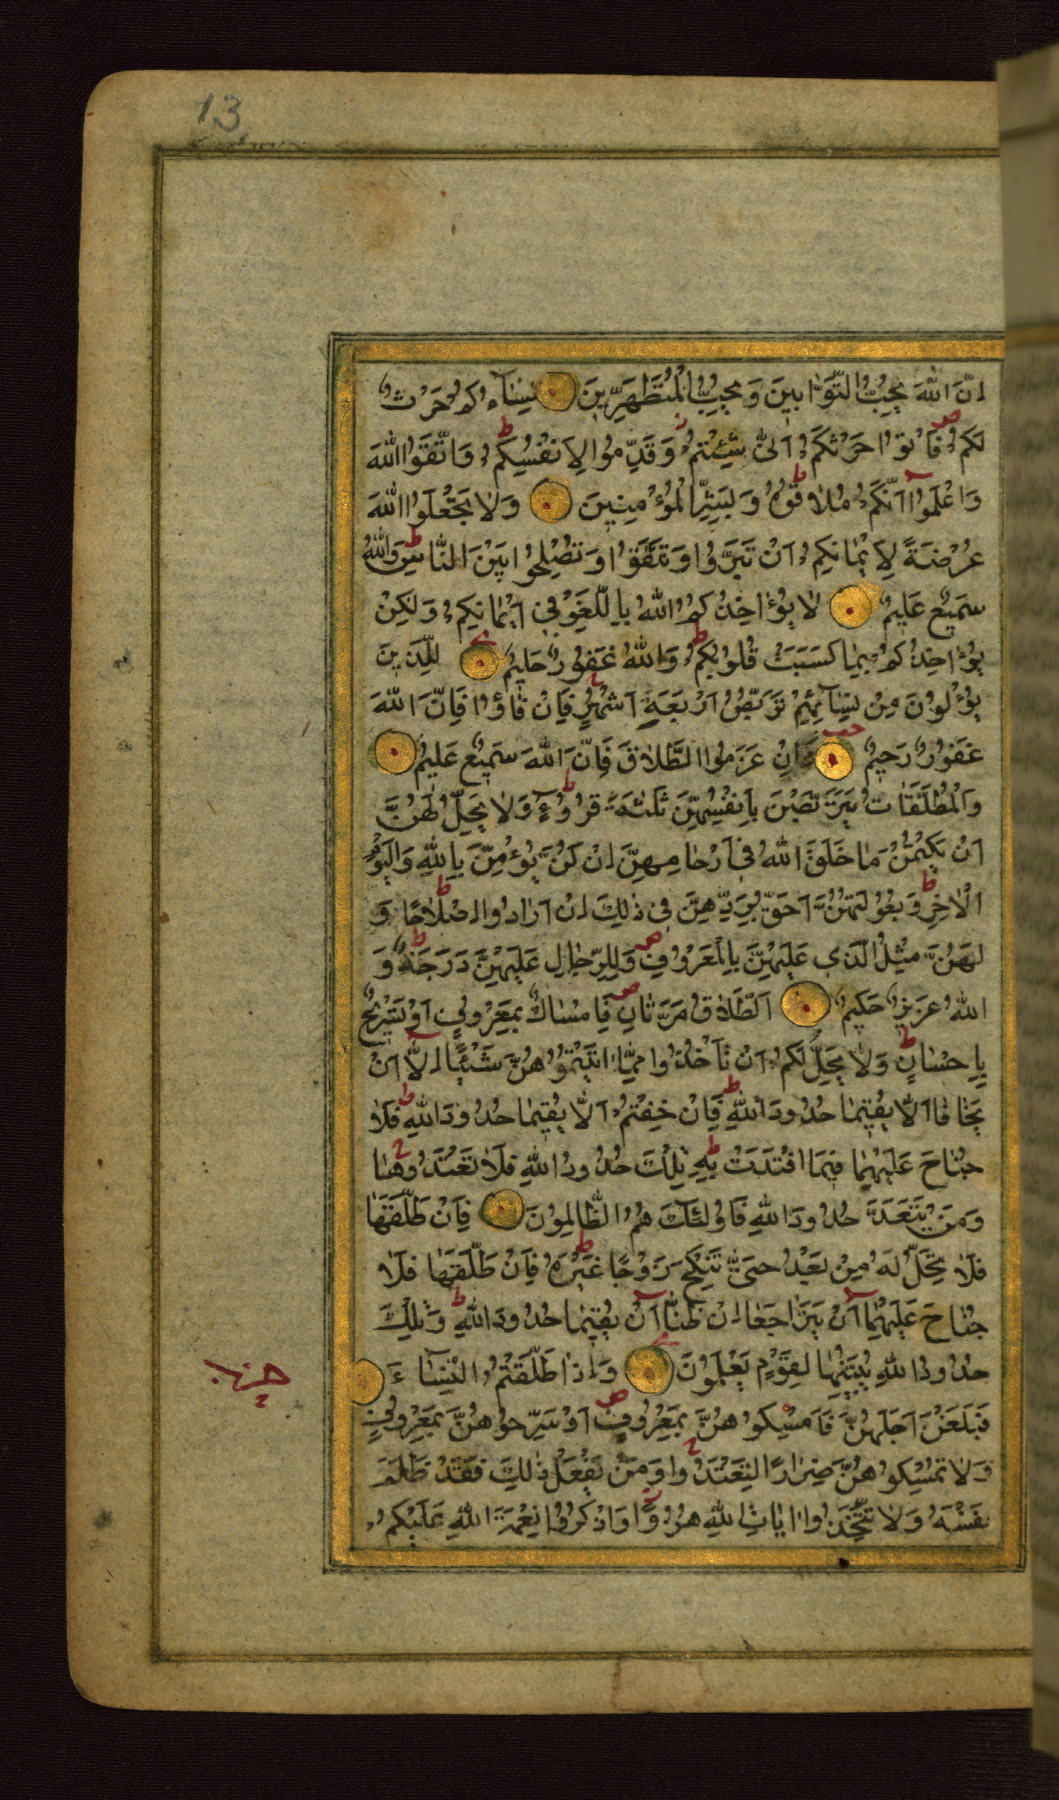 13
اِنَّ اللّٰهَ يُحِبُّ التَّوَّابِينَ وَيُحِبُّ الْمُتَطَهِّرِينَ نِسَاؤُكُمْ حَرْثٌ
لَكُمْ فَأْتُوا حَرْثَكُمْ اَنّٰى شِئْتُمْ وَقَدِّمُوا لِاَنْفُسِكُمْ وَاتَّقُوا اللّٰهَ
وَاعْلَمُوا اَنَّكُمْ مُلَاقُوهُ وَبَشِّرِ الْمُؤْمِنِينَ وَلَا تَجْعَلُوا اللّٰهَ
عُرْضَةً لِاَيْمَانِكُمْ اَنْ تَبَرُّوا وَتَتَّقُوا وَتُصْلِحُوا بَيْنَ النَّاسِ وَاللّٰهُ
سَمِيعٌ عَلِيمٌ لَا يُؤَاخِذُكُمُ اللّٰهُ بِاللَّغْوِ فِي اَيْمَانِكُمْ وَلٰكِنْ
يُؤَاخِذُكُمْ بِمَا كَسَبَتْ قُلُوبُكُمْ وَاللّٰهُ غَفُورٌ حَلِيمٌ لِلَّذِينَ
يُؤْلُونَ مِنْ نِسَائِهِمْ تَرَبُّصُ اَرْبَعَةِ اَشْهُرٍ فَاِنْ فَاؤُا فَاِنَّ اللّٰهَ
غَفُورٌ رَحِيمٌ وَاِنْ عَزَمُوا الطَّلَاقَ فَاِنَّ اللّٰهَ سَمِيعٌ عَلِيمٌ
وَالْمُطَلَّقَاتُ يَتَرَبَّصْنَ بِاَنْفُسِهِنَّ ثَلٰثَةَ قُرُوءٍ وَلَا يَحِلُّ لَهُنَّ
اَنْ يَكْتُمْنَ مَا خَلَقَ اللّٰهُ فِي اَرْحَامِهِنَّ اِنْ كُنَّ يُؤْمِنَّ بِاللّٰهِ وَالْيَوْمِ
الْاٰخِرِ وَبُعُولَتُهُنَّ اَحَقُّ بِرَدِّهِنَّ فِي ذٰلِكَ اِنْ اَرَادُوا اِصْلَاحًا وَ
لَهُنَّ مِثْلُ الَّذِي عَلَيْهِنَّ بِالْمَعْرُوفِ وَلِلرِّجَالِ عَلَيْهِنَّ دَرَجَةٌ وَ
اللّٰهُ عَزِيزٌ حَكِيمٌ اَلطَّلَاقُ مَرَّتَانِ فَاِمْسَاكٌ بِمَعْرُوفٍ اَوْ تَسْرِيحٌ
بِاِحْسَانٍ وَلَا يَحِلُّ لَكُمْ اَنْ تَأْخُذُوا مِمَّا اٰتَيْتُمُوهُنَّ شَيْئًا اِلَّا اَنْ
يَخَافَا اَلَّا يُقِيمَا حُدُودَ اللّٰهِ فَاِنْ خِفْتُمْ اَلَّا يُقِيمَا حُدُودَ اللّٰهِ فَلَا
جُنَاحَ عَلَيْهِمَا فِيمَا افْتَدَتْ بِهِ تِلْكَ حُدُودُ اللّٰهِ فَلَا تَعْتَدُوهَا
وَمَنْ يَتَعَدَّ حُدُودَ اللّٰهِ فَاُولٰئِكَ هُمُ الظَّالِمُونَ فَاِنْ طَلَّقَهَا
فَلَا تَحِلُّ لَهُ مِنْ بَعْدُ حَتّٰى تَنْكِحَ زَوْجًا غَيْرَهُ فَاِنْ طَلَّقَهَا فَلَا
جُنَاحَ عَلَيْهِمَا اَنْ يَتَرَاجَعَا اِنْ ظَنَّا اَنْ يُقِيمَا حُدُودَ اللّٰهِ وَتِلْكَ
حُدُودُ اللّٰهِ يُبَيِّنُهَا لِقَوْمٍ يَعْلَمُونَ وَاِذَا طَلَّقْتُمُ النِّسَاءَ
حزب
فَبَلَغْنَ اَجَلَهُنَّ فَاَمْسِكُوهُنَّ بِمَعْرُوفٍ اَوْ سَرِّحُوهُنَّ بِمَعْرُوفٍ
وَلَا تُمْسِكُوهُنَّ ضِرَارًا لِتَعْتَدُوا وَمَنْ يَفْعَلْ ذٰلِكَ فَقَدْ ظَلَمَ
نَفْسَهُ وَلَا تَتَّخِذُوا اٰيَاتِ اللّٰهِ هُزُوًا وَاذْكُرُوا نِعْمَةَ اللّٰهِ عَلَيْكُمْ